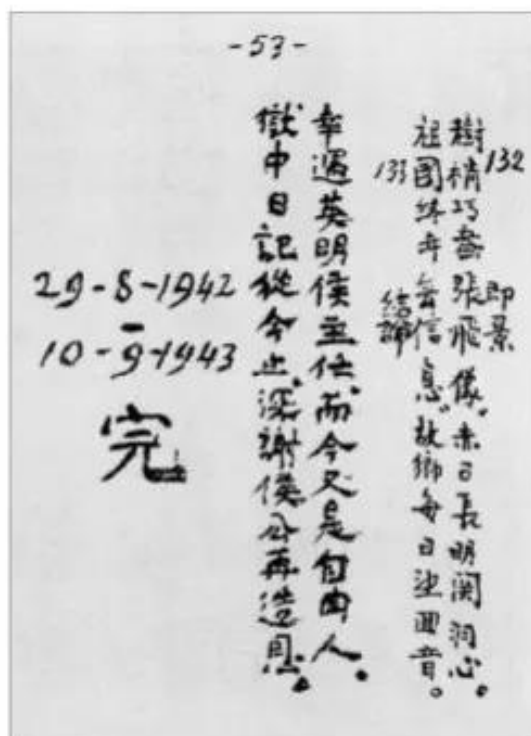 -53-
132 即景
樹梢巧畫張飛像。赤日長明関羽心。
祖國終年無信息。故鄉每日望囬音。
133 結論
幸遇英明侯主任。而今又是自由人。
獄中日記從今止。深謝侯公再造恩。
29-8-1942
-
10-9-1943
完